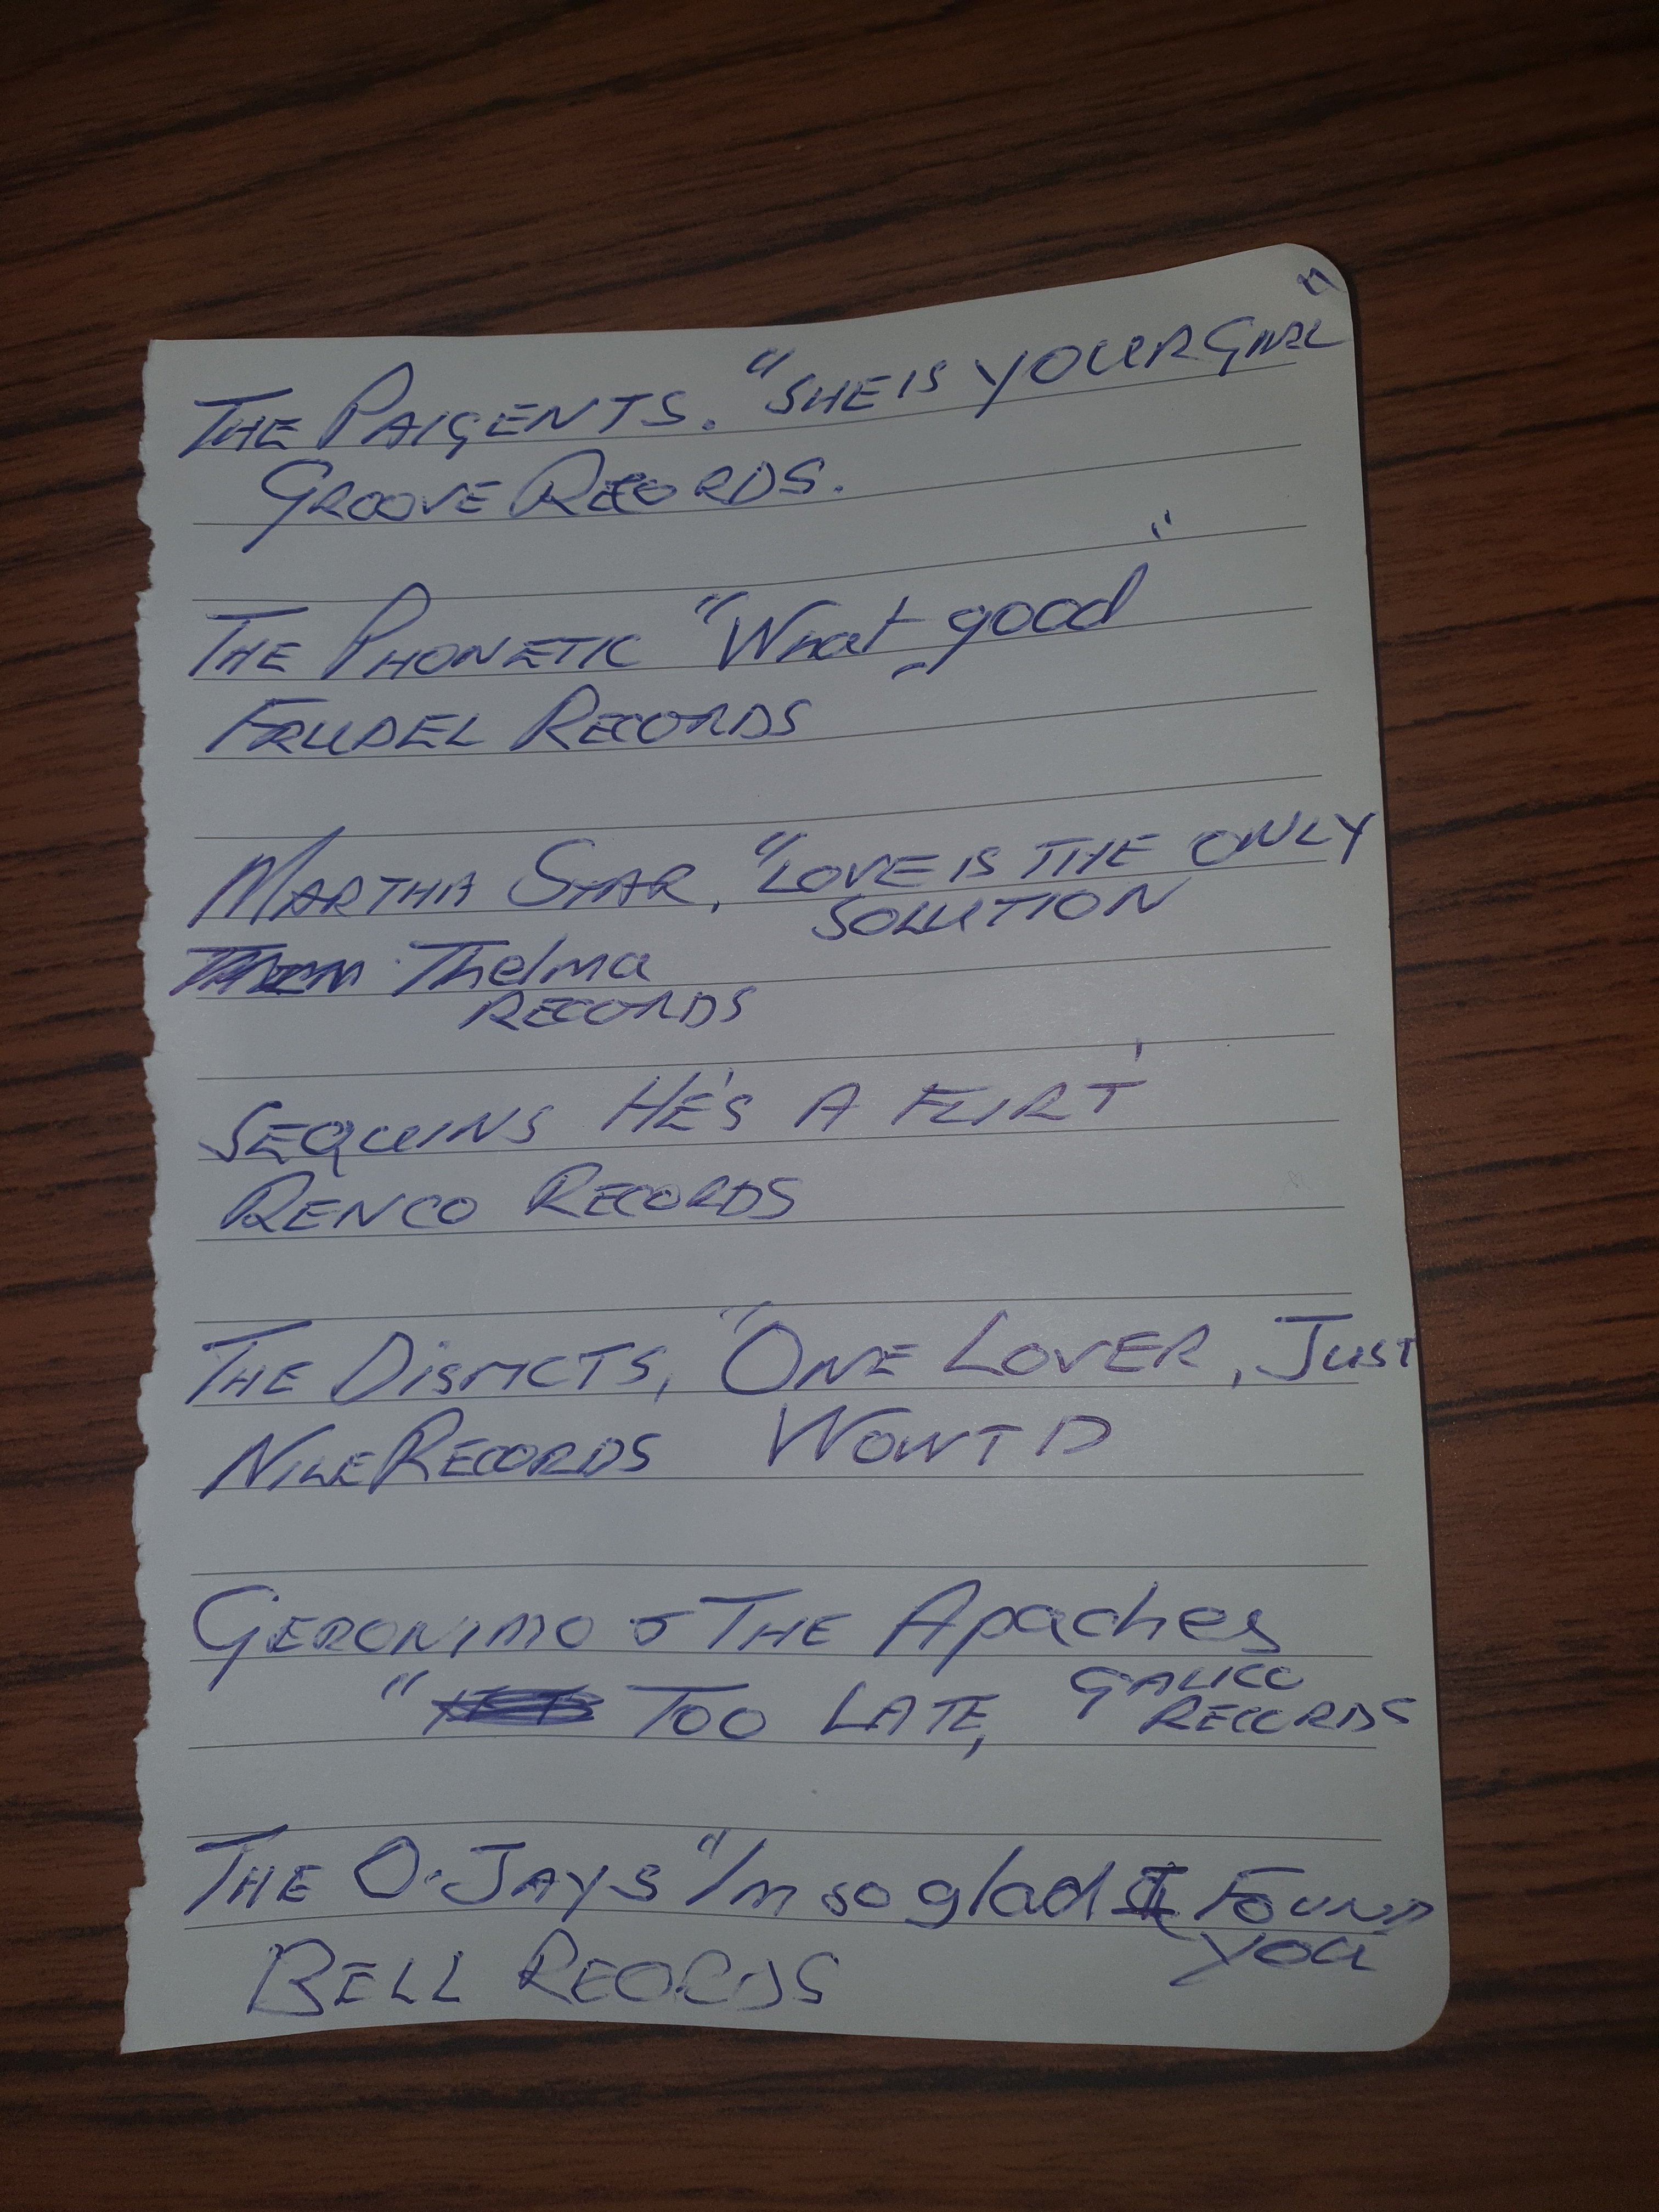 THE PAIGENTS. "SHE IS YOUR GIRL"
GROOVE RECORDS.
THE PHONETIC "What good"
FRUDEL RECORDS
MARTHA STAR, "LOVE IS THE ONLY
SOLUTION
Thelma
RECORDS
SEQUINS HE'S A FLIRT'
RENCO RECORDS
THE DISTRICTS, "ONE LOVER, JUST
NILE RECORDS WONT D
GERONIMO & THE Apaches
" TOO LATE, GALICO
RECORDS
THE O-JAYS "I'm so glad I FOUND
YOU
BELL RECORDS